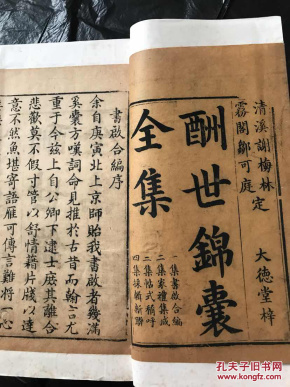 清溪謝梅林定
霧閣鄒可庭
酬世錦囊
全集
一集書啟合編
二集家禮集成
三集帖式稱呼
四集採輯新聯
大德堂梓
書啟合編序
余自庚寅北上京師貽我書啟者幾滿
奚囊方嘆詞命見推於古昔而翰言尤
重于今玆上自公卿下逮士庶其離合
悲歡莫不假寸管以舒情藉片牋以達
意不然魚堪寄語雁可傳言難將一心
孔夫子旧书网